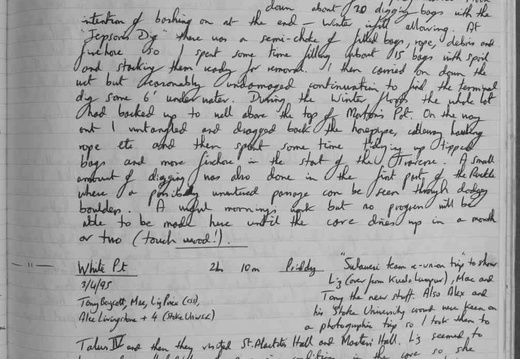 down about 20 digging bags with the
intention of bashing on at the end – Winter infill allowing. At
"Jepson's Dig" there was a semi-choke of filled bags, rope, debris and
firehose so I spent some time filling about 15 bags with spoil
and stacking them ready for removal. I then carried on down the
wet but reasonably undamaged continuation to find the terminal
dig some 6' under water. During the Winter floods the whole lot
had backed up to well above the top of Morton's Pot. On the way
out I untangled and dragged back the hosepipe, hauling
rope etc and then spent some time tidying up tipped
bags and more firehose in the start of the Traverse. A small
amount of digging was also done in the first part of the
where a possibly unentered passage can be seen through dodgy
boulders. A useful mornings work but no progress will be
able to be made here until the cave dries up in a month
or two (touch wood!).
— 11 — White Pit 2h 10m Priddy
2/4/95
Tony Boycott, Mac, Liz
Alex Livingstone + 4 (Stoke Univ.)
"Sulawesi team re-union trip" to show
Liz (over from Kuala Lumpur), Mac and
Tony the new stuff. Also Alex and
his Stoke University were keen on
a photographic trip so I took them to
Talus IV and then they visited St. Alactites Hall and Masters Hall. Liz seemed to
in the cave so she